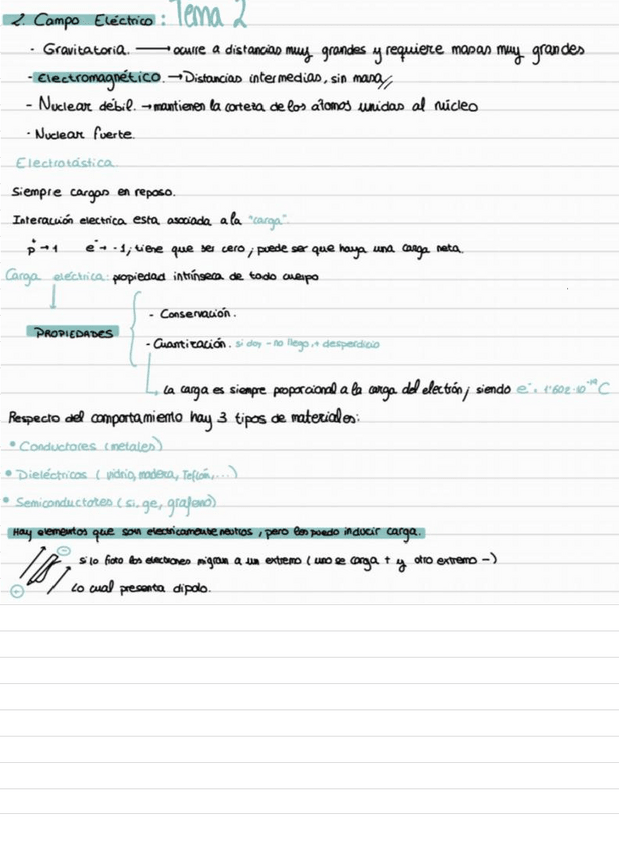 2. Campo Eléctrico: Tema 2
· Gravitatoria. → ocurre a distancias muy grandes y requiere masas muy grandes
- Electromagnético. → Distancias intermedias, sin masa //
- Nuclear débil. → mantienen la corteza de los átomos unidas al núcleo
· Nuclear fuerte.
Electrotástica
Siempre cargas en reposo.
Interacción electrica esta asociada a la "carga".
p⁺ → 1 e⁻ → -1; tiene que ser cero, puede ser que haya una carga neta.
Carga eléctrica: propiedad intrínseca de todo cuerpo
PROPIEDADES
- Conservación.
- Cuantización. si doy - no llego, + desperdicio
La carga es siempre proporcional a la carga del electrón; siendo e⁻ = 1'602·10⁻¹⁹ C
Respecto del comportamiento hay 3 tipos de materiales:
• Conductores (metales)
• Dieléctricos ( vidrio, madera, Teflón,...)
• Semiconductores (si, ge, grafeno)
Hay elementos que son electricamente neutros, pero les puedo inducir carga.
- si lo froto los electrones migran a un extremo (uno se carga + y otro extremo -)
+ Lo cual presenta dipolo.